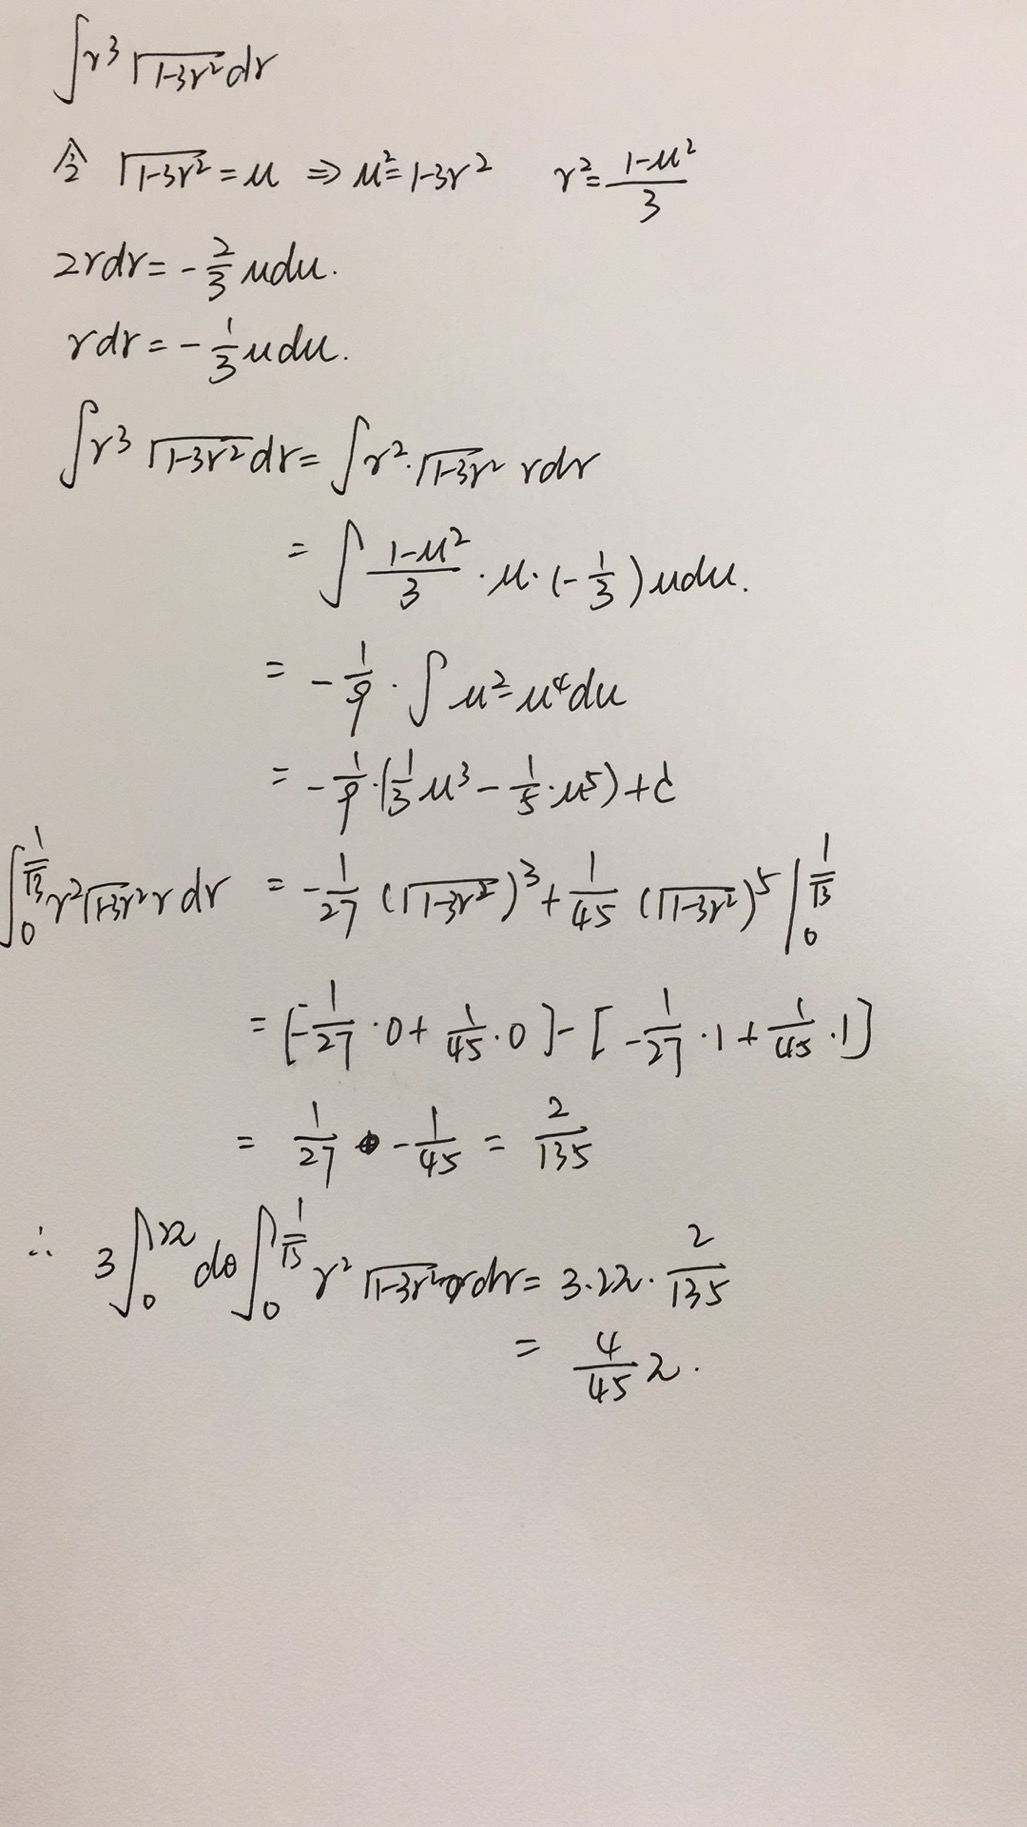 ∫r³√(1-3r²)dr
令 √(1-3r²)=u ⇒ u²=1-3r² r²=(1-u²)/3
2rdr=-2/3 udu.
rdr=-1/3 udu.
∫r³√(1-3r²)dr=∫r²·√(1-3r²) rdr
=∫(1-u²)/3·u·(-1/3)udu.
=-1/9·∫u²-u⁴du
=-1/9·(1/3 u³-1/5·u⁵)+c
∫₀^(1/√3) r²√(1-3r²) r dr =-1/27(√(1-3r²))³+1/45(√(1-3r²))⁵|₀^(1/√3)
=[-1/27·0+1/45·0]-[-1/27·1+1/45·1]
=1/27-1/45=2/135
∴ 3∫₀^(2π)dθ∫₀^(1/√3) r²√(1-3r²)·rdr=3·2π·2/135
=4/45 π.